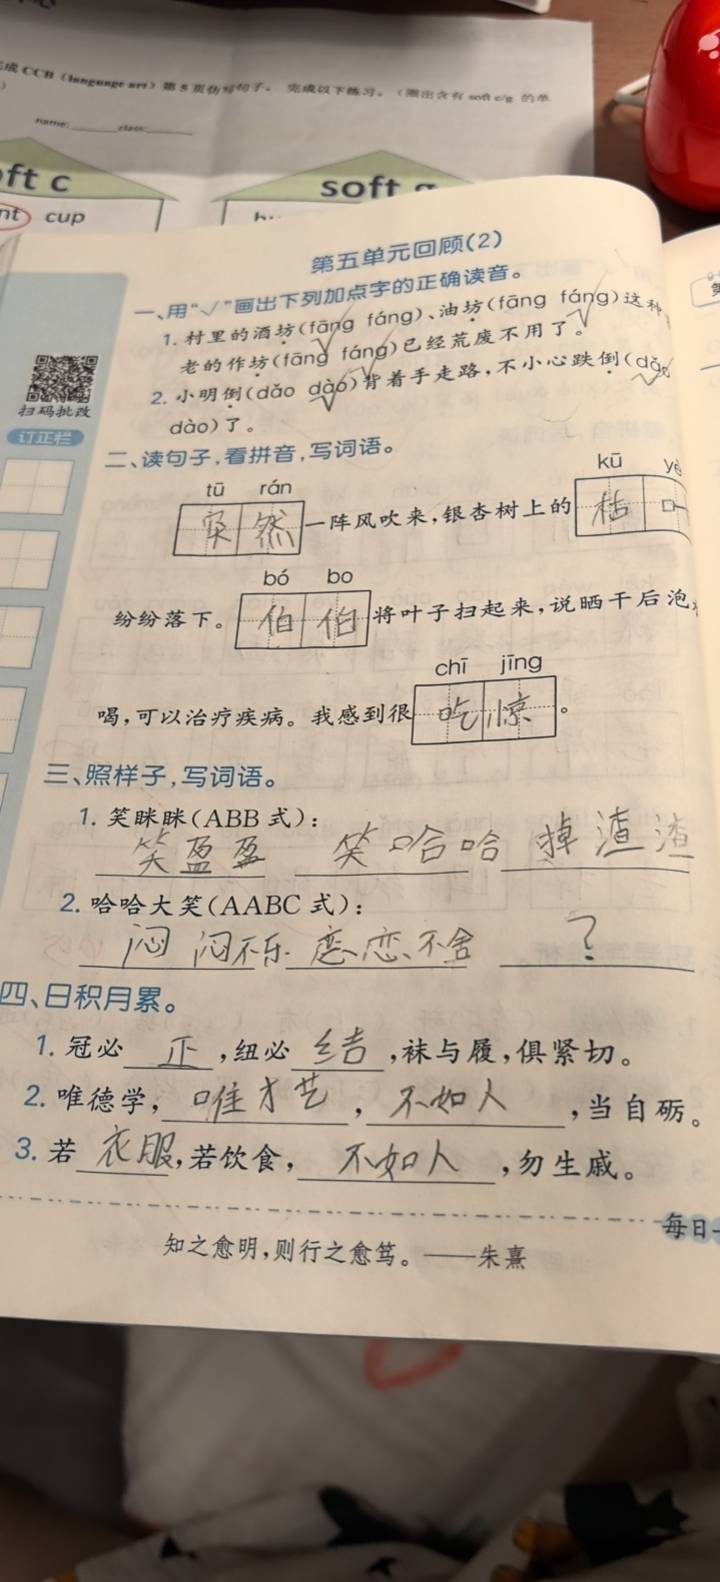 成 CCB（language art）第 5 页仿写句子。 完成以下练习。（圈出含有 soft c/g 的单
name: class:
ft c
soft
nt cup
第五单元回顾(2)
一、用“√”画出下列加点字的正确读音。
1. 村里的酒坊(fāng fáng)、油坊(fāng fáng)这种
老的作坊(fāng fáng)已经荒废不用了。
2. 小明倒(dǎo dào)背着手走路,不小心跌倒(dǎo
dào)了。
扫码批改
订正栏
二、读句子,看拼音,写词语。
tū rán kū yè
突然一阵风吹来,银杏树上的枯口
bó bo
纷纷落下。伯伯将叶子扫起来,说晒干后泡
chī jīng
喝,可以治疗疾病。我感到很吃惊。
三、照样子,写词语。
1. 笑眯眯(ABB 式):
笑盈盈 笑哈哈 掉渣渣
2. 哈哈大笑(AABC 式):
闷闷不乐 恋恋不舍 ?
四、日积月累。
1. 冠必正,纽必结,袜与履,俱紧切。
2. 唯德学,唯才艺,不如人,当自砺。
3. 若衣服,若饮食,不如人,勿生戚。
每日一
知之愈明,则行之愈笃。——朱熹